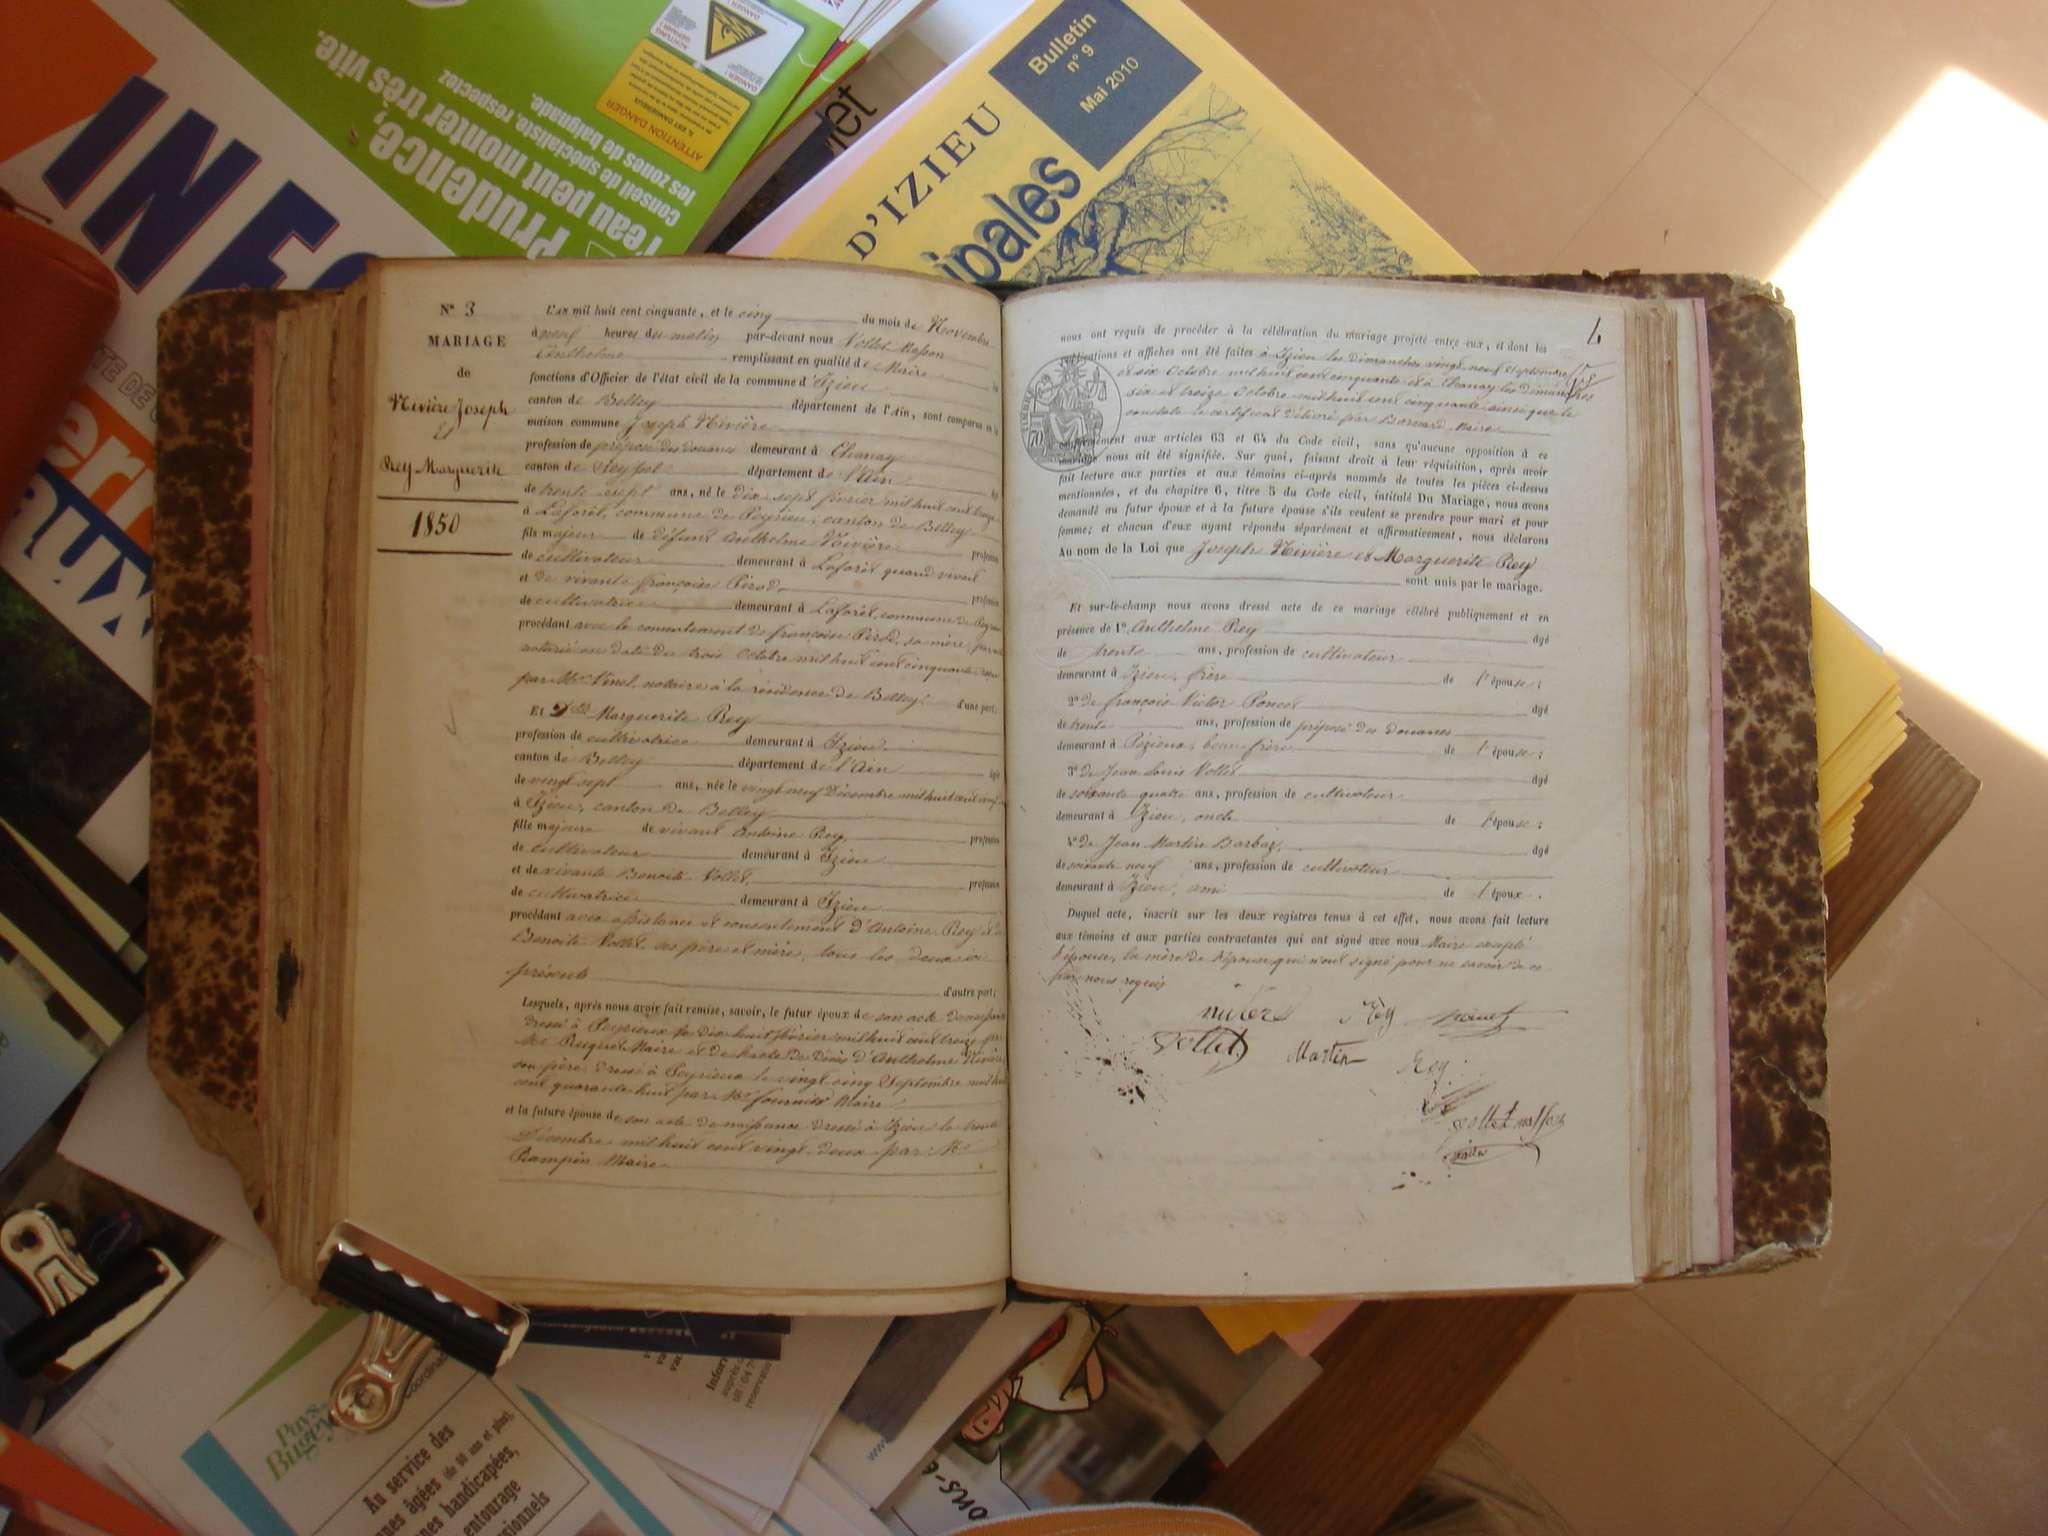 Nº 3
MARIAGE
de
Nivière Joseph
Et
Rey Marguerite
1850
L'AN mil huit cent cinquante, et le cinq du mois de Novembre
à neuf heures du matin par-devant nous Vollet Masson
Anthelme remplissant en qualité de Maire
fonctions d'Officier de l'état civil de la commune d'Izieu
canton de Belley département de l'Ain, sont comparus en la
maison commune Joseph Nivière
profession de préposé des douanes demeurant à Chanay
canton de Seyssel département de l'Ain
de trente sept ans, né le dix sept février mil huit cent treize
à Laforêt, commune de Peyrieu, canton de Belley
fils majeur de défunt Anthelme Nivière profession
de cultivateur demeurant à Laforêt quand vivait
et de vivante françoise Pirod, profession
de cultivatrice demeurant à Laforêt, commune de Peyrieu
procédant avec le consentement de françoise Pirod, sa mère, par acte
notarié en date du trois Octobre mil huit cent cinquante, reçu
par Me Vinet, notaire à la résidence de Belley d'une part;
Et Dlle Marguerite Rey
profession de cultivatrice demeurant à Izieu
canton de Belley département de l'Ain âgée
de vingt sept ans, née le vingt neuf Décembre mil huit cent vingt
à Izieu, canton de Belley
fille majeure de vivant Antoine Rey, profession
de cultivateur demeurant à Izieu
et de vivante Benoite Vollet, profession
de cultivatrice demeurant à Izieu
procédant avec assistance et consentement d'Antoine Rey et de
Benoite Vollet, ses père et mère, tous les deux ici
présents d'autre part;
Lesquels, après nous avoir fait remise, savoir, le futur époux de son acte de naissance
dressé à Peyrieux le dix huit février mil huit cent treize par
Mr Puguet Maire et de l'acte de décès d'Anthelme Nivière
son père, dressé à Peyrieux le vingt cinq Septembre mil huit
cent quarante huit par Mr fournier Maire
et la future épouse de son acte de naissance dressé à Izieu le trente
Décembre mil huit cent vingt deux par Mr
Rampin Maire
4
nous ont requis de procéder à la célébration du mariage projeté entre eux, et dont les
publications et affiches ont été faites à Izieu les dimanches vingt neuf Septembre
et six Octobre mil huit cent cinquante et à Chanay les dimanches
six et treize Octobre mil huit cent cinquante ainsi que le
constate le certificat délivré par Bornard, Maire
conformément aux articles 63 et 64 du Code civil, sans qu'aucune opposition à ce
mariage nous ait été signifiée. Sur quoi, faisant droit à leur réquisition, après avoir
fait lecture aux parties et aux témoins ci-après nommés de toutes les pièces ci-dessus
mentionnées, et du chapitre 6, titre 5 du Code civil, intitulé Du Mariage, nous avons
demandé au futur époux et à la future épouse s'ils veulent se prendre pour mari et pour
femme; et chacun d'eux ayant répondu séparément et affirmativement, nous déclarons
Au nom de la Loi que Joseph Nivière et Marguerite Rey
sont unis par le mariage.
Et sur-le-champ nous avons dressé acte de ce mariage célébré publiquement et en
présence de 1º Anthelme Rey âgé
de trente ans, profession de cultivateur
demeurant à Izieu, frère de l'épouse;
2º de françois Victor Poncet âgé
de trente ans, profession de préposé des douanes
demeurant à Pézieux, beau-frère de l'épouse;
3º de Jean Louis Vollet âgé
de soixante quatre ans, profession de cultivateur
demeurant à Izieu, oncle de l'épouse;
4º de Jean Martin Barbaz, âgé
de soixante neuf ans, profession de cultivateur
demeurant à Izieu, ami de l'époux.
Duquel acte, inscrit sur les deux registres tenus à cet effet, nous avons fait lecture
aux témoins et aux parties contractantes qui ont signé avec nous Maire excepté
l'épouse, la mère de l'épouse, qui n'ont signé pour ne savoir de ce
par nous requis
Rey
Vollet
Martin
Rey
Vollet masson
maire
INFO
Prudence,
l'eau peut monter très vite.
conseil de spécialiste, respectez
les zones de baignade.
ATTENTION DANGER
D'IZIEU
ipales
Bulletin
n° 9
Mai 2010
Pays
Bugey
Coordina
Au service des
nnes âgées (de 60 ans et plus),
nnes handicapées,
entourage
ssionnels